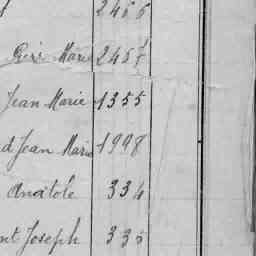 2456
Marie 2457
Jean Marie 1355
d Jean Marie 1998
Anatole 334
nt Joseph 335